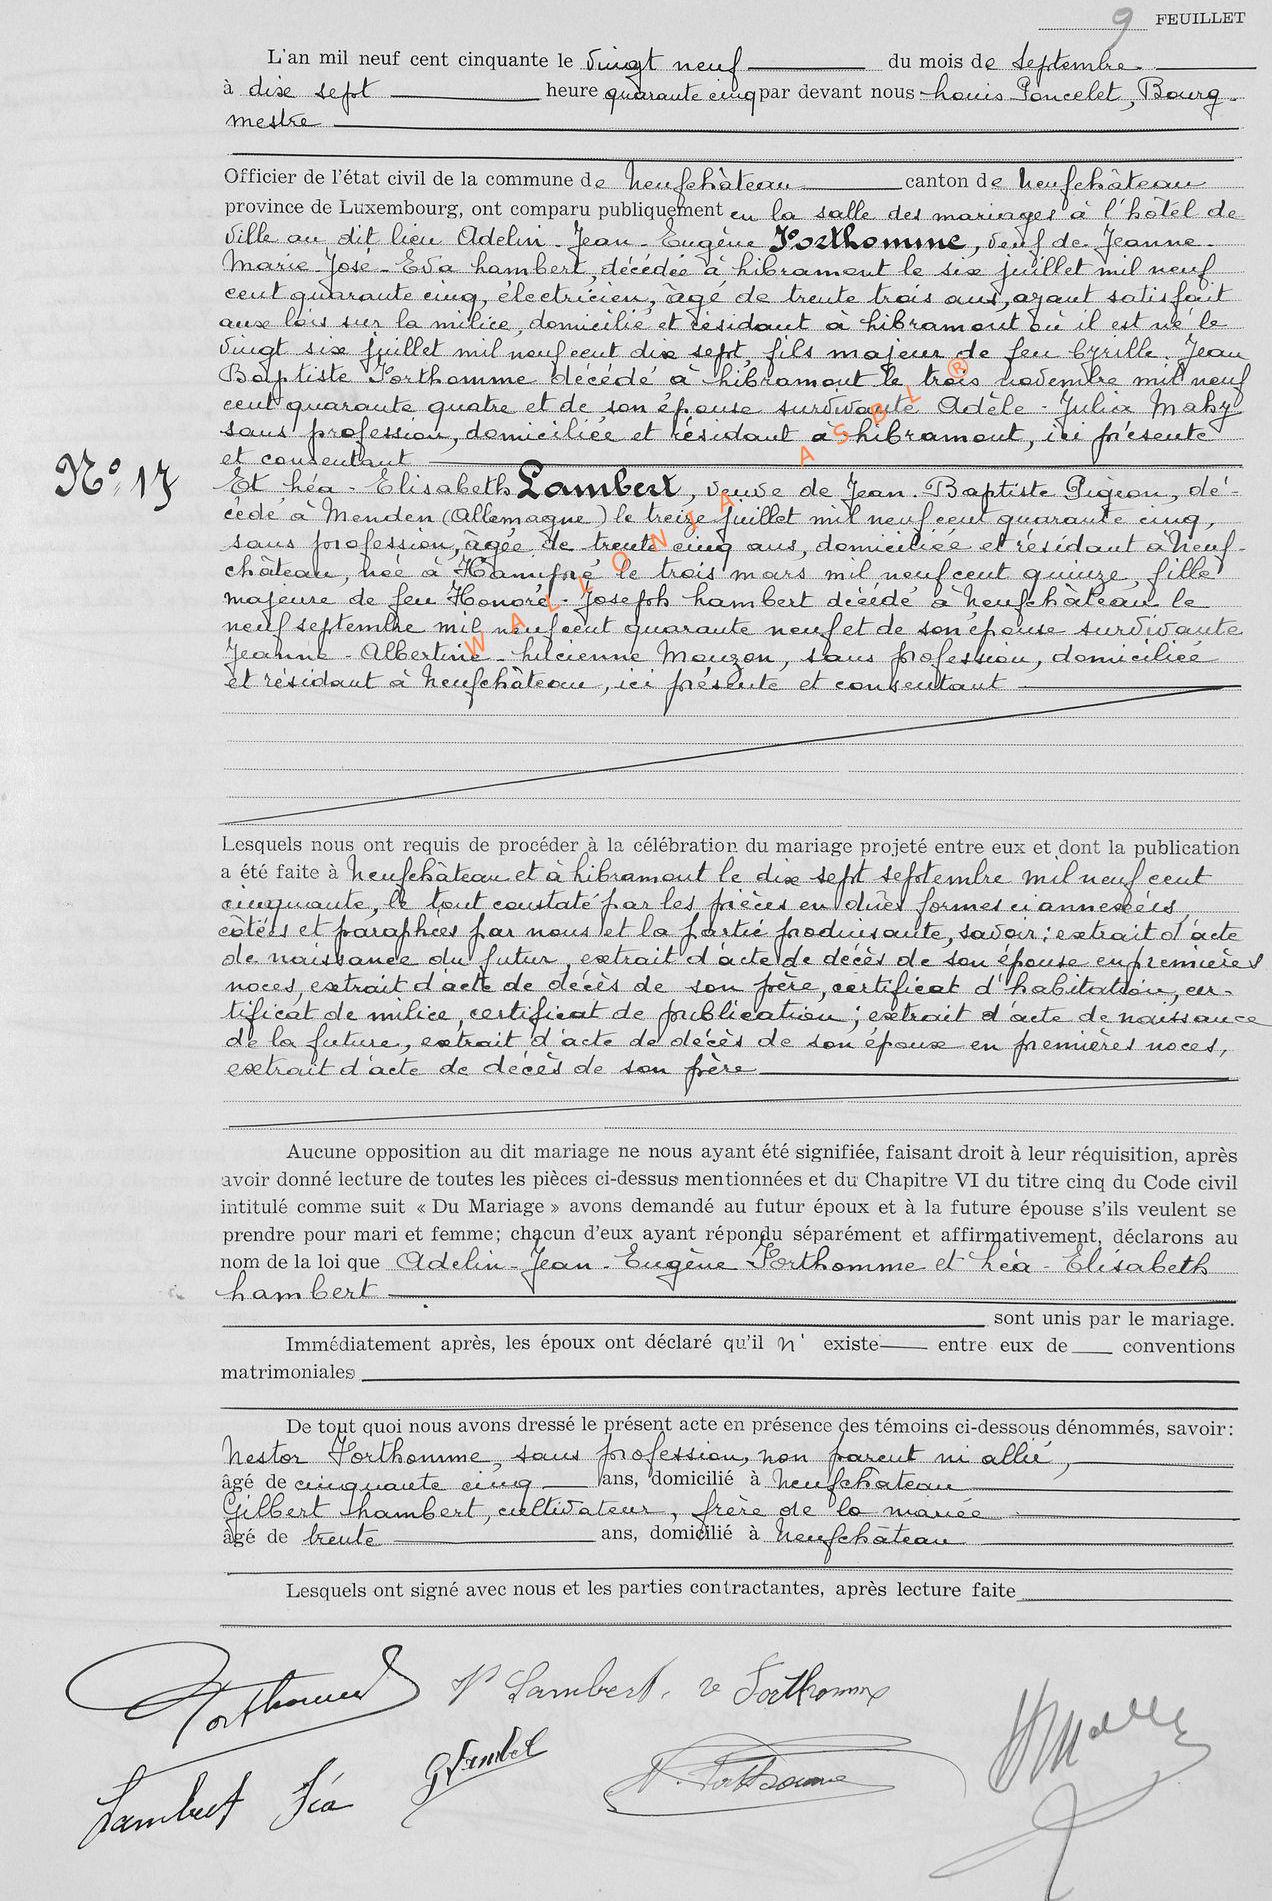 9 FEUILLET
L'an mil neuf cent cinquante le vingt neuf du mois de septembre
à dix sept heure quarante cinq par devant nous Louis Poncelet, Bourg-
mestre
Officier de l'état civil de la commune de Neufchâteau canton de Neufchâteau
province de Luxembourg, ont comparu publiquement en la salle des mariages à l'hôtel de
ville au dit lieu Adelin-Jean-Eugène Forthomme, veuf de Jeanne-
Marie-José-Eva Lambert, décédée à Libramont le six juillet mil neuf
cent quarante cinq, électricien, âgé de trente trois ans, ayant satisfait
aux lois sur la milice, domicilié et résidant à Libramont où il est né le
vingt six juillet mil neuf cent dix sept, fils majeur de feu Cyrille-Jean
Baptiste Forthomme décédé à Libramont le trois novembre mil neuf
cent quarante quatre et de son épouse survivante Adèle-Julia Mahy
sans profession, domiciliée et résidant à Libramont, ici présente
et consentant
N° 17
Et Léa-Elisabeth Lambert, veuve de Jean-Baptiste Pigeon, dé-
cédé à Menden (Allemagne) le treize juillet mil neuf cent quarante cinq,
sans profession, âgée de trente cinq ans, domiciliée et résidant à Neuf-
château, née à Hamipré le trois mars mil neuf cent quinze, fille
majeure de feu Honoré-Joseph Lambert décédé à Neufchâteau le
neuf septembre mil neuf cent quarante neuf et de son épouse survivante
Jeanne-Albertine-Lucienne Mouzon, sans profession, domiciliée
et résidant à Neufchâteau, ici présente et consentant
WALLONIA ASBL ®
Lesquels nous ont requis de procéder à la célébration du mariage projeté entre eux et dont la publication
a été faite à Neufchâteau et à Libramont le dix sept septembre mil neuf cent
cinquante, le tout constaté par les pièces en dûes formes ci annexées,
côtées et paraphées par nous et la partie produisante, savoir: extrait d'acte
de naissance du futur, extrait d'acte de décès de son épouse en premières
noces, extrait d'acte de décès de son père, certificat d'habitation, cer-
tificat de milice, certificat de publication; extrait d'acte de naissance
de la future, extrait d'acte de décès de son époux en premières noces,
extrait d'acte de décès de son père
Aucune opposition au dit mariage ne nous ayant été signifiée, faisant droit à leur réquisition, après
avoir donné lecture de toutes les pièces ci-dessus mentionnées et du Chapitre VI du titre cinq du Code civil
intitulé comme suit « Du Mariage » avons demandé au futur époux et à la future épouse s'ils veulent se
prendre pour mari et femme; chacun d'eux ayant répondu séparément et affirmativement, déclarons au
nom de la loi que Adelin-Jean-Eugène Forthomme et Léa-Elisabeth
Lambert
sont unis par le mariage.
Immédiatement après, les époux ont déclaré qu'il n' existe entre eux de conventions
matrimoniales
De tout quoi nous avons dressé le présent acte en présence des témoins ci-dessous dénommés, savoir:
Nestor Forthomme, sans profession, non parent ni allié,
âgé de cinquante cinq ans, domicilié à Neufchâteau
Gilbert Lambert, cultivateur, frère de la mariée
âgé de trente ans, domicilié à Neufchâteau
Lesquels ont signé avec nous et les parties contractantes, après lecture faite
Forthomme Lambert. Forthomme
Lambert Léa GLambert N. Forthomme